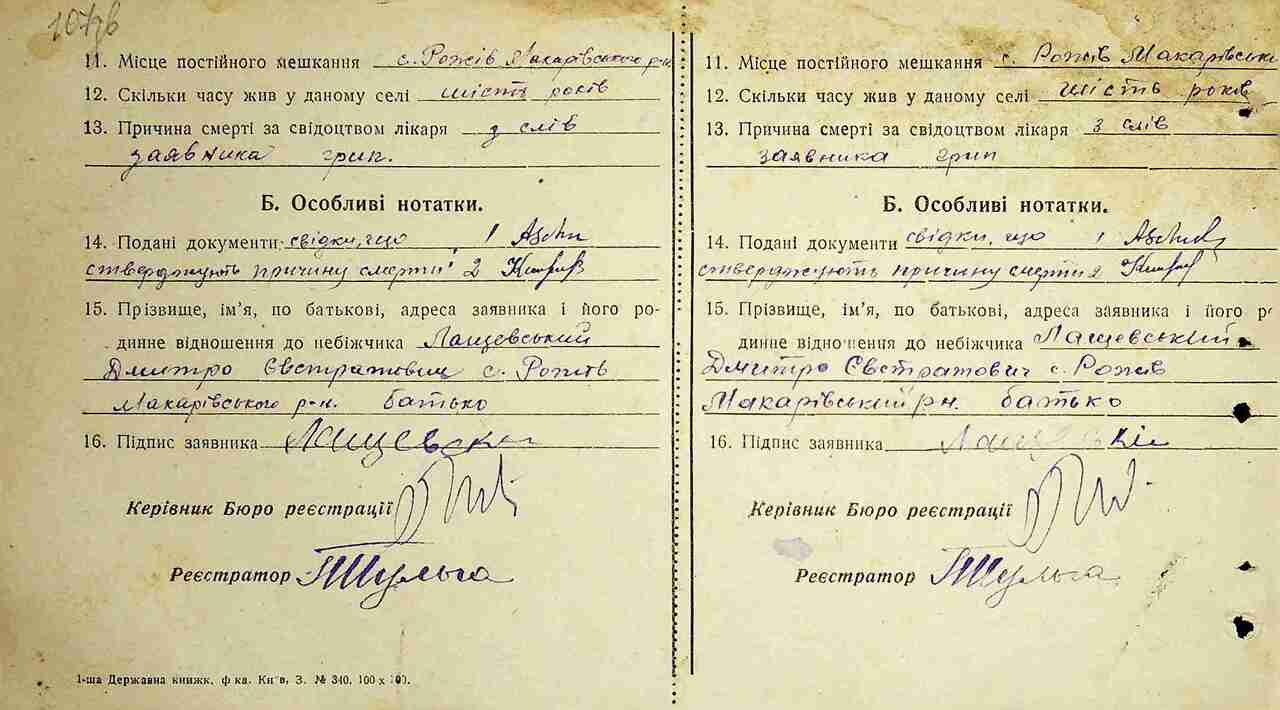 107зв
11. Місце постійного мешкання с. Рожів Макарівського р-н
12. Скільки часу жив у даному селі шість років
13. Причина смерті за свідоцтвом лікаря з слів
заявника грип.
Б. Особливі нотатки.
14. Подані документи свідки, що 1
стверджують причину смерти 2
15. Прізвище, ім'я, по батькові, адреса заявника і його ро-
динне відношення до небіжчика Лащевський
Дмитро Євстратович с. Рожів
Макарівського р-н. батько
16. Підпис заявника Лащевски
Керівник Бюро реєстрації
Реєстратор Шульга
1-ша Державна книжк. ф-ка. Київ, З. № 340. 100 х 100.
11. Місце постійного мешкання с. Рожів Макарівськ
12. Скільки часу жив у даному селі шість років
13. Причина смерті за свідоцтвом лікаря з слів
заявника грип
Б. Особливі нотатки.
14. Подані документи свідки, що 1
стверджують причину смерти 2
15. Прізвище, ім'я, по батькові, адреса заявника і його р
динне відношення до небіжчика Лащевський
Дмитро Євстратович с. Рожів
Макарівський р-н. батько
16. Підпис заявника Лащевскій
Керівник Бюро реєстрації
Реєстратор Шульга